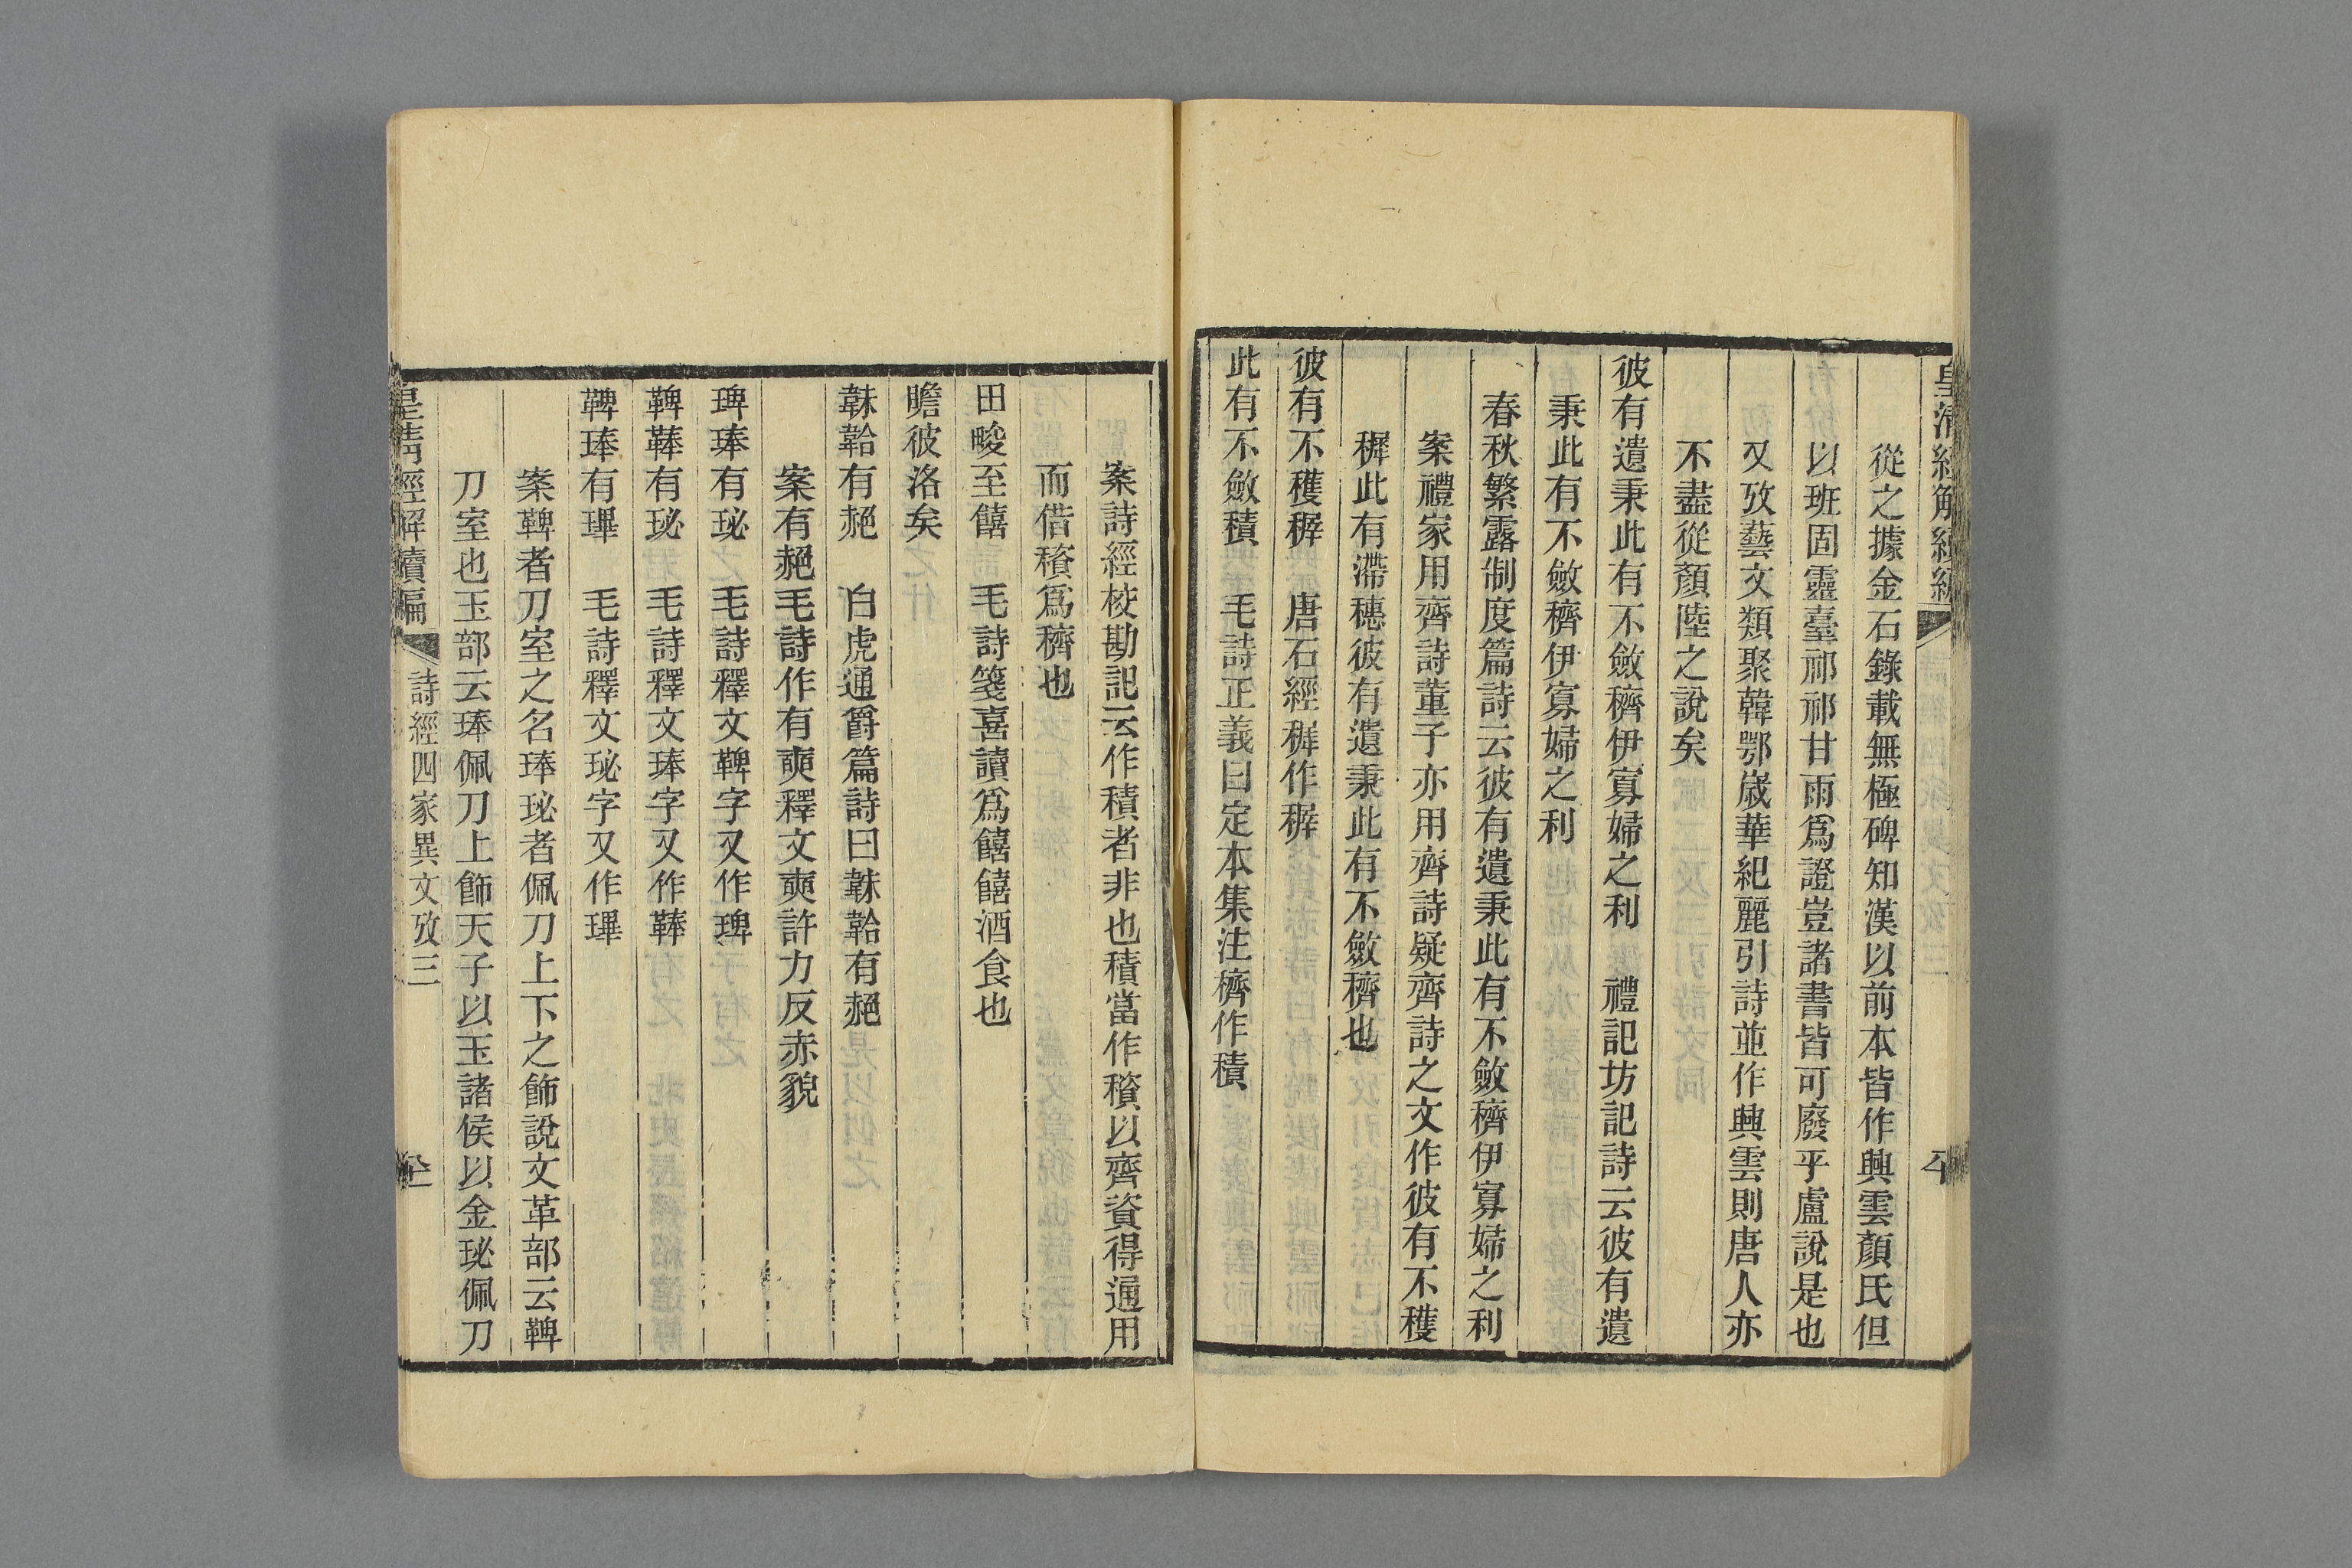 皇清經解續編
從之據金石錄載無極碑知漢以前本皆作興雲顏氏但
以班固靈臺祁祁甘雨爲證豈諸書皆可廢乎盧說是也
又攷藝文類聚韓鄂歲華紀麗引詩並作興雲則唐人亦
不盡從顏陸之說矣
彼有遺秉此有不斂穧伊寡婦之利 禮記坊記詩云彼有遺
秉此有不斂穧伊寡婦之利
春秋繁露制度篇詩云彼有遺秉此有不斂穧伊寡婦之利
案禮家用齊詩董子亦用齊詩疑齊詩之文作彼有不穫
穉此有滯穗彼有遺秉此有不斂穧也
彼有不穫稺 唐石經穉作稺
此有不斂積 毛詩正義曰定本集注穧作積
案詩經校勘記云作積者非也積當作穦以齊資得通用
而借穦爲穧也
田畯至饎 毛詩箋喜讀爲饎饎酒食也
瞻彼洛矣
韎韐有赩 白虎通爵篇詩曰韎韐有赩
案有赩毛詩作有奭釋文奭許力反赤貌
琕琫有珌 毛詩釋文鞞字又作琕
鞞鞛有珌 毛詩釋文琫字又作鞛
鞞琫有琿 毛詩釋文珌字又作琿
案鞞者刀室之名琫珌者佩刀上下之飾說文革部云鞞
刀室也玉部云琫佩刀上飾天子以玉諸侯以金珌佩刀
皇清經解續編 詩經四家異文攷三